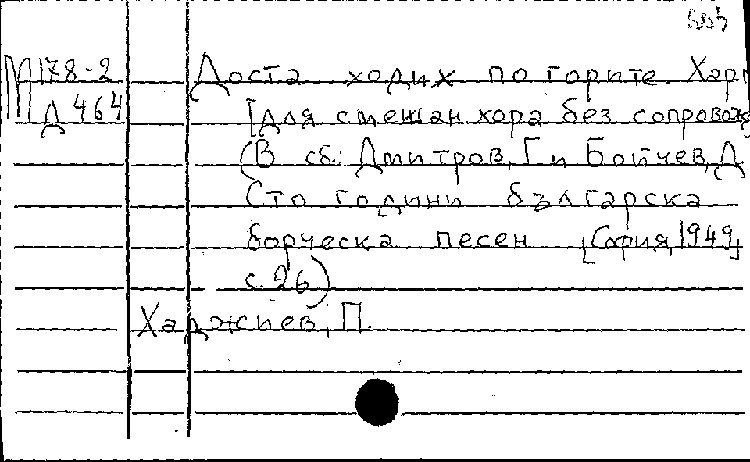 М178-2
Д464
Доста ходих по горите. Хар
[для смешан хора без сопровож
(В сб: Дмитров, Г. и Бойчев, Д
Сто години българска
борческа песен [София, 1949]
с. 26)
Хаджиев, П.